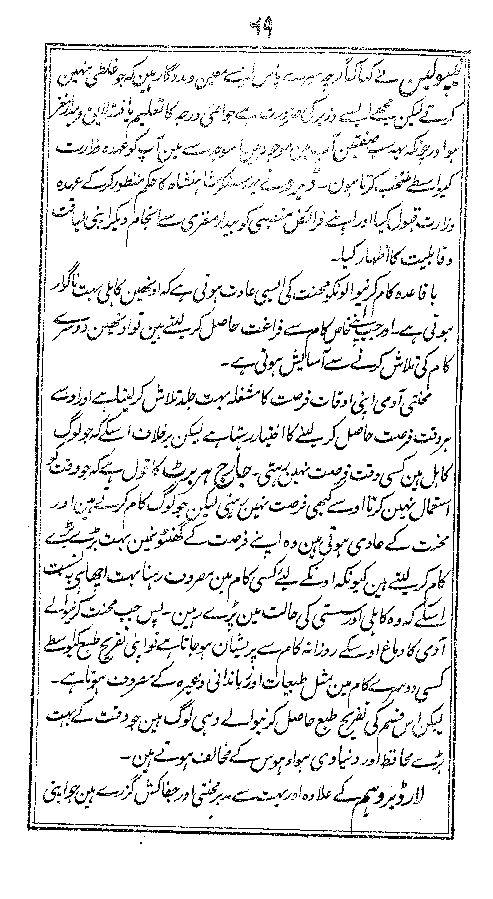 ۶۹
نیپولین نے کہا کہ اگرچہ میرے پاس ایسے معین و مددگار ہین کہ جو غلطی نہین
کرتے لیکن مجھے ایسے وزیر کی ضرورت ہے جو اعلیٰ درجہ کا تعلیم یافتہ لاین و بیدار مغز
ہو اور چونکہ یہ سب صفتین آپ مین موجود ہین اس وجہ سے مین آپ کو عہدہ وزارت
کیواسطے منتخب کرتا ہون۔ ڈیرو نے یہ سنکر شاہنشاہ کا حکم منظور کر کے عہدہ
وزارت قبول کیا اور اپنے فرائض منصبی کو بیدار مغزی سے انجام دیکر اپنی لیاقت
و قابلیت کا اظہار کیا۔
باقاعدہ کام کرنیوالونکو محنت کی ایسی عادت ہوتی ہے کہ اونھین کاہلی بہت ناگوار
ہوتی ہے۔ اور جب اپنے خاص کام سے فراغت حاصل کر لیتے ہین تو اونھین دوسرے
کام کی تلاش کرنے سے آسایش ہوتی ہے۔
محنتی آدمی اپنی اوقات فرصت کا مشغلہ بہت جلد تلاش کر لیتا ہے اور اوسے
ہر وقت فرصت حاصل کر لینے کا اختیار رہتا ہے لیکن برخلاف اسکے کہ جو لوگ
کاہل ہین کسی وقت فرصت نہین رہتی۔ جارج ہربرٹ کا قول ہے کہ جو وقت کو
استعمال نہین کرتا اوسے کبھی فرصت نہین رہتی لیکن جو لوگ کام کرتے ہین اور
محنت کے عادی ہوتی ہین وہ اپنے فرصت کے گھنٹونمین بہت بڑے بڑے
کام کر لیتے ہین کیونکہ اونکے لیئے کسی کام مین مصروف رہنا بہت اچھا ہی بہ نسبت
اسکے کہ وہ کاہلی اور سستی کی حالت مین پڑے رہین۔ پس جب محنت کرنیوالے
آدمی کا دماغ اوسکے روزانہ کام سے پریشان ہو جاتا ہے تو اپنی تفریح طبع کیواسطے
کسی دوسرے کام مین مثل طبعیات اور زباندانی وغیرہ کے مصروف ہوتا ہے۔
لیکن اس قسم کی تفریح طبع حاصل کرنیوالے وہی لوگ ہین جو وقت کے بہت
بڑے محافظ اور دنیاوی ہوا و ہوس کے مخالف ہوتے ہین۔
لارڈ بروہم کے علاوہ اور بہت سے مدبر محنتی اور جفاکش گزرے ہین جو اپنی